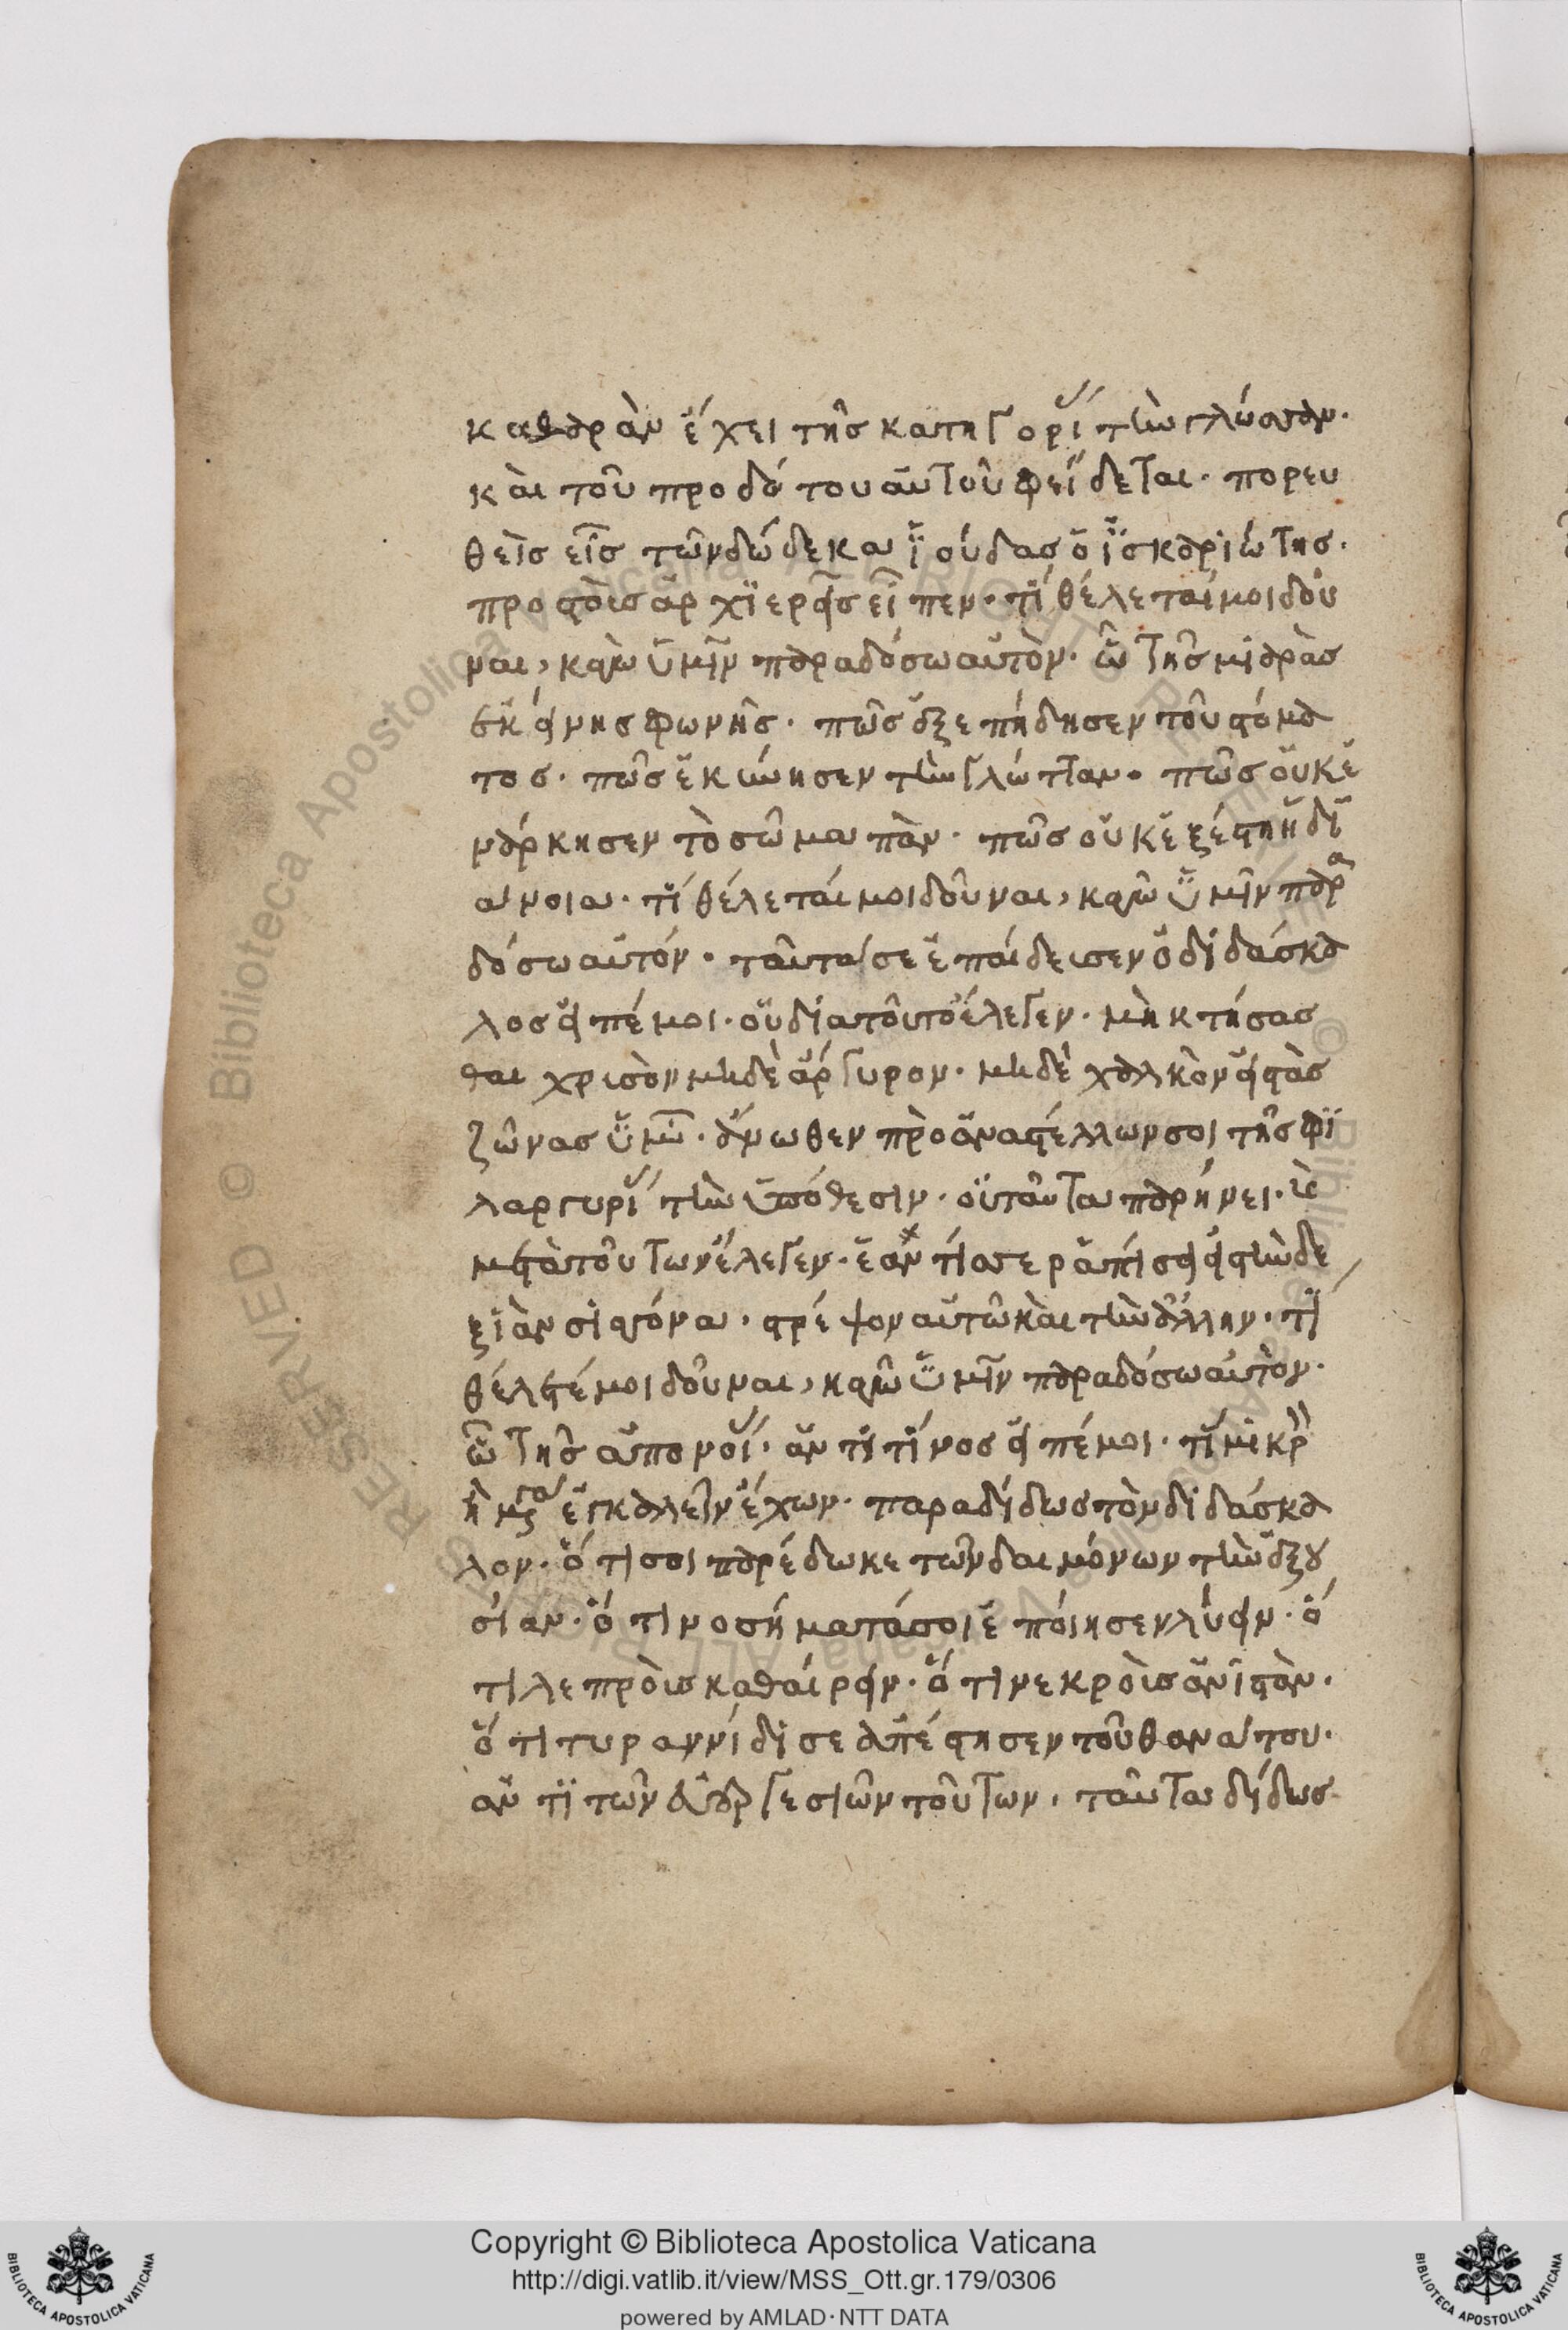 καθαρὰν ἔχει τῆς κατηγορί(ας) τὴν γλῶσσαν·
καὶ τοῦ προδότου αὐτοῦ φείδεται· πορευ
θεὶς εἷς τῶν δώδεκα ἰούδας ὁ ἰσκαριώτης·
προς τοὺς ἀρχϊερεῖς εἶπεν· τί θέλεταί μοι δοῦ
ναι, καγὼ ὑμῖν παραδόσω αὐτὸν· ὢ τῆς μιαρὰς
ἐκείνης φωνῆς· πῶς ἐξεπήδησεν τοῦ στόμα
τος· πῶς ἐκίνησεν τὴν γλώτταν· πῶς οὐκ ἐ
νάρκησεν τὸ σῶμα πὰν· πῶς οὐκ ἐξέστη ἡ δι
άνοια· τί θέλεταί μοι δοῦναι, καγὼ ὑμῖν παρα
δόσω αὐτόν· ταῦτα σε ἐπαίδεισεν ὁ διδάσκα
λος εἰπέ μοι· οὐ δία τοῦτο ἔλεγεν· μὴ κτήσασ
θαι χρισὸν μηδὲ ἄργυρον· μηδὲ χαλκὸν εἰς τὰς
ζώνας ὑμῶν· ἄνωθεν προαναστέλλων σοι τῆς φι
λαργυρί(ας) τὴν ὑπόθεσιν· οὐ ταῦτα παρήνει· καὶ
μετὰ τούτων ἔλεγεν· ἐάν τίς σε ραπίσει εἰς τὴν δε
ξιὰν σιαγόνα· στρέψον αὐτῶ καὶ τὴν ἄλλην· τί
θέλετέ μοι δοῦναι, καγὼ ὑμῖν παραδόσω αὐτὸν·
ὢ τῆς ἀπονοί(ας)· ἀντὶ τίνος εἰπέ μοι· τί μικρὸν
ἢ μέγα ἐγκαλεῖν ἔχων· παραδίδως τὸν διδάσκα
λον· ὅτι σοι παρέδωκε τῶν δαιμόνων τὴν ἐξου
σίαν· ὅτι νοσήματά σοι ἐποίησεν λύειν· ὅ
τι λεπροὺς καθαίρειν· ὅτι νεκροὺς ἀνιστὰν·
ὅτι τυραννίδι σε ἀπέστησεν τοῦ θανάτου·
ἀντὶ τῶν εὐεργεσιῶν τούτων· ταῦτα δίδως
Copyright © Biblioteca Apostolica Vaticana
http://digi.vatlib.it/view/MSS_Ott.gr.179/0306
powered by AMLAD·NTT DATA